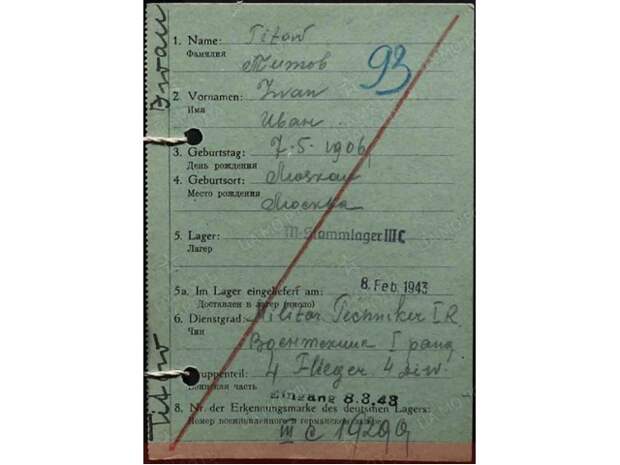 Iwan
Titow
1. Name: Titow
Фамилия Титов
93
2. Vornamen: Iwan
Имя Иван
3. Geburtstag: 7.5.1906
День рождения
4. Geburtsort: Moskau
Место рождения Москва
5. Lager: M-Stammlager III C
Лагерь
5a. Im Lager eingeliefert am: 8. Feb. 1943
Доставлен в лагерь (число)
6. Dienstgrad: Militär Techniker I R
Чин Воентехник I ранг
Truppenteil: 4 Flieger 4 Div
Воинская часть
Eingang 8.3.43
8. Nr. der Erkennungsmarke des deutschen Lagers:
Номер военнопленного в германском лагере
III C